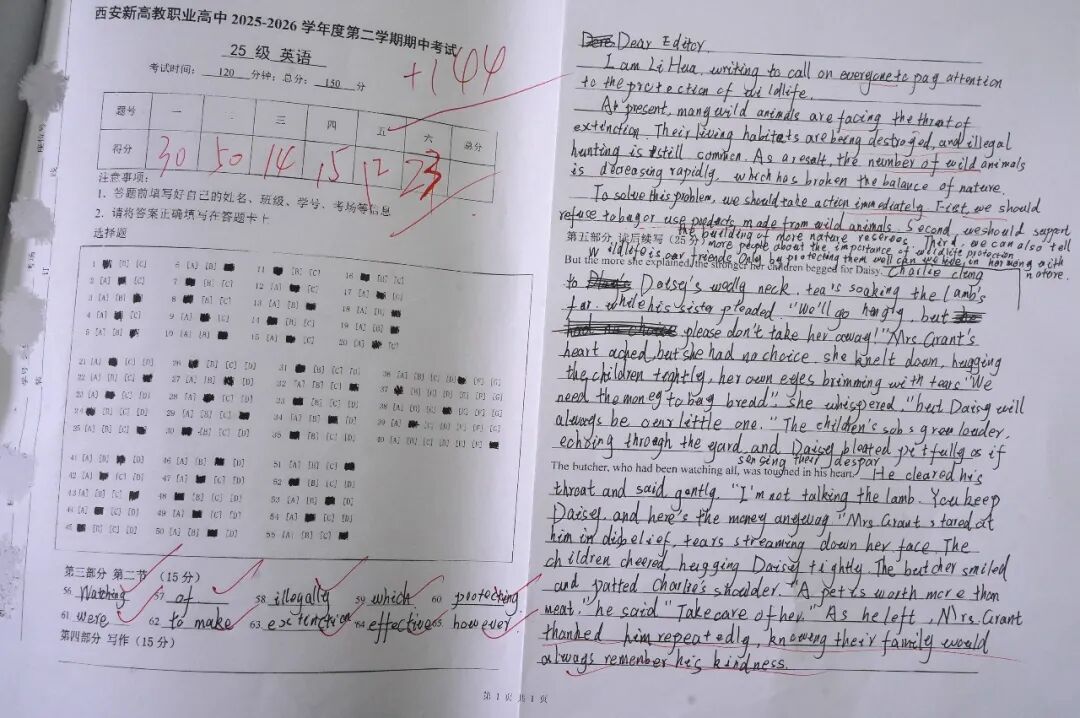 西安新高教职业高中 2025-2026 学年度第二学期期中考试
25 级 英语
考试时间： 120 分钟；总分： 150 分
+144
题号 一 二 三 四 五 六 总分
得分 30 50 14 15 12 23
注意事项：
1、答题前填写好自己的姓名、班级、学号、考场等信息
2、请将答案正确填写在答题卡上
选择题
第三部分 第二节（15 分）
56. Watching 57. of 58. illegally 59. which 60. protecting
61. were 62. to make 63. extenction 64. effective 65. however
第四部分 写作（15 分）
Dear Editor,
I am Li Hua, writing to call on everyone to pag attention
to the protection of wildlife.
At present, mang wild animals are facing the threat of
extinction. Their living habitats are being destroged, and illegal
hunting is still common. As a result, the number of wild animals
is decreasing rapidly, which has broken the balance of nature.
To solve this problem, we should take action immediately. First, we should
refuse to bug or use prodects made from wild animals. Second, we should support
the building of more nature reserves. Third, we can also tell
第五部分 读后续写（25 分）
more people about the importance of wildlife protection
Wildlife is our friends. Only by protecting them well can we live in harmong with
nature.
But the more she explained, the stronger her children begged for Daisy. Charlie clung
to Daisy's wolly neck, tears soaking the lamb's
fur, while his sister pleaded. "We'll go hungly, but
please don't take her away!" Mrs. Grant's
heart ached, but she had no choice. she knelt down, hugging
the children tightly, her own eges brimming with tears "We
need the moneg to bug bread", she whispered, "but Daisg will
always be our little one." The children's sobs grew louder,
echoing through the gard, and Daisy bleated pitfully as if
sensing their despar
The butcher, who had been watching all, was touched in his heart. He cleared his
throat and said gently, "I'm not talking the lamb. You keep
Daisy, and here's the money angwag" Mrs. Grant stared at
him in disbelief, tears streaming down her face. The
children cheered, hugging Daisy tightly. The butcher smiled
and patted Charlie's shoulder. "A pet is worth more than
meat," he said "Take care of her." As he left, Mrs. Grant
thanked him repeatedly, knowing their family would
always remember his kindness.
第 1 页 共 1 页